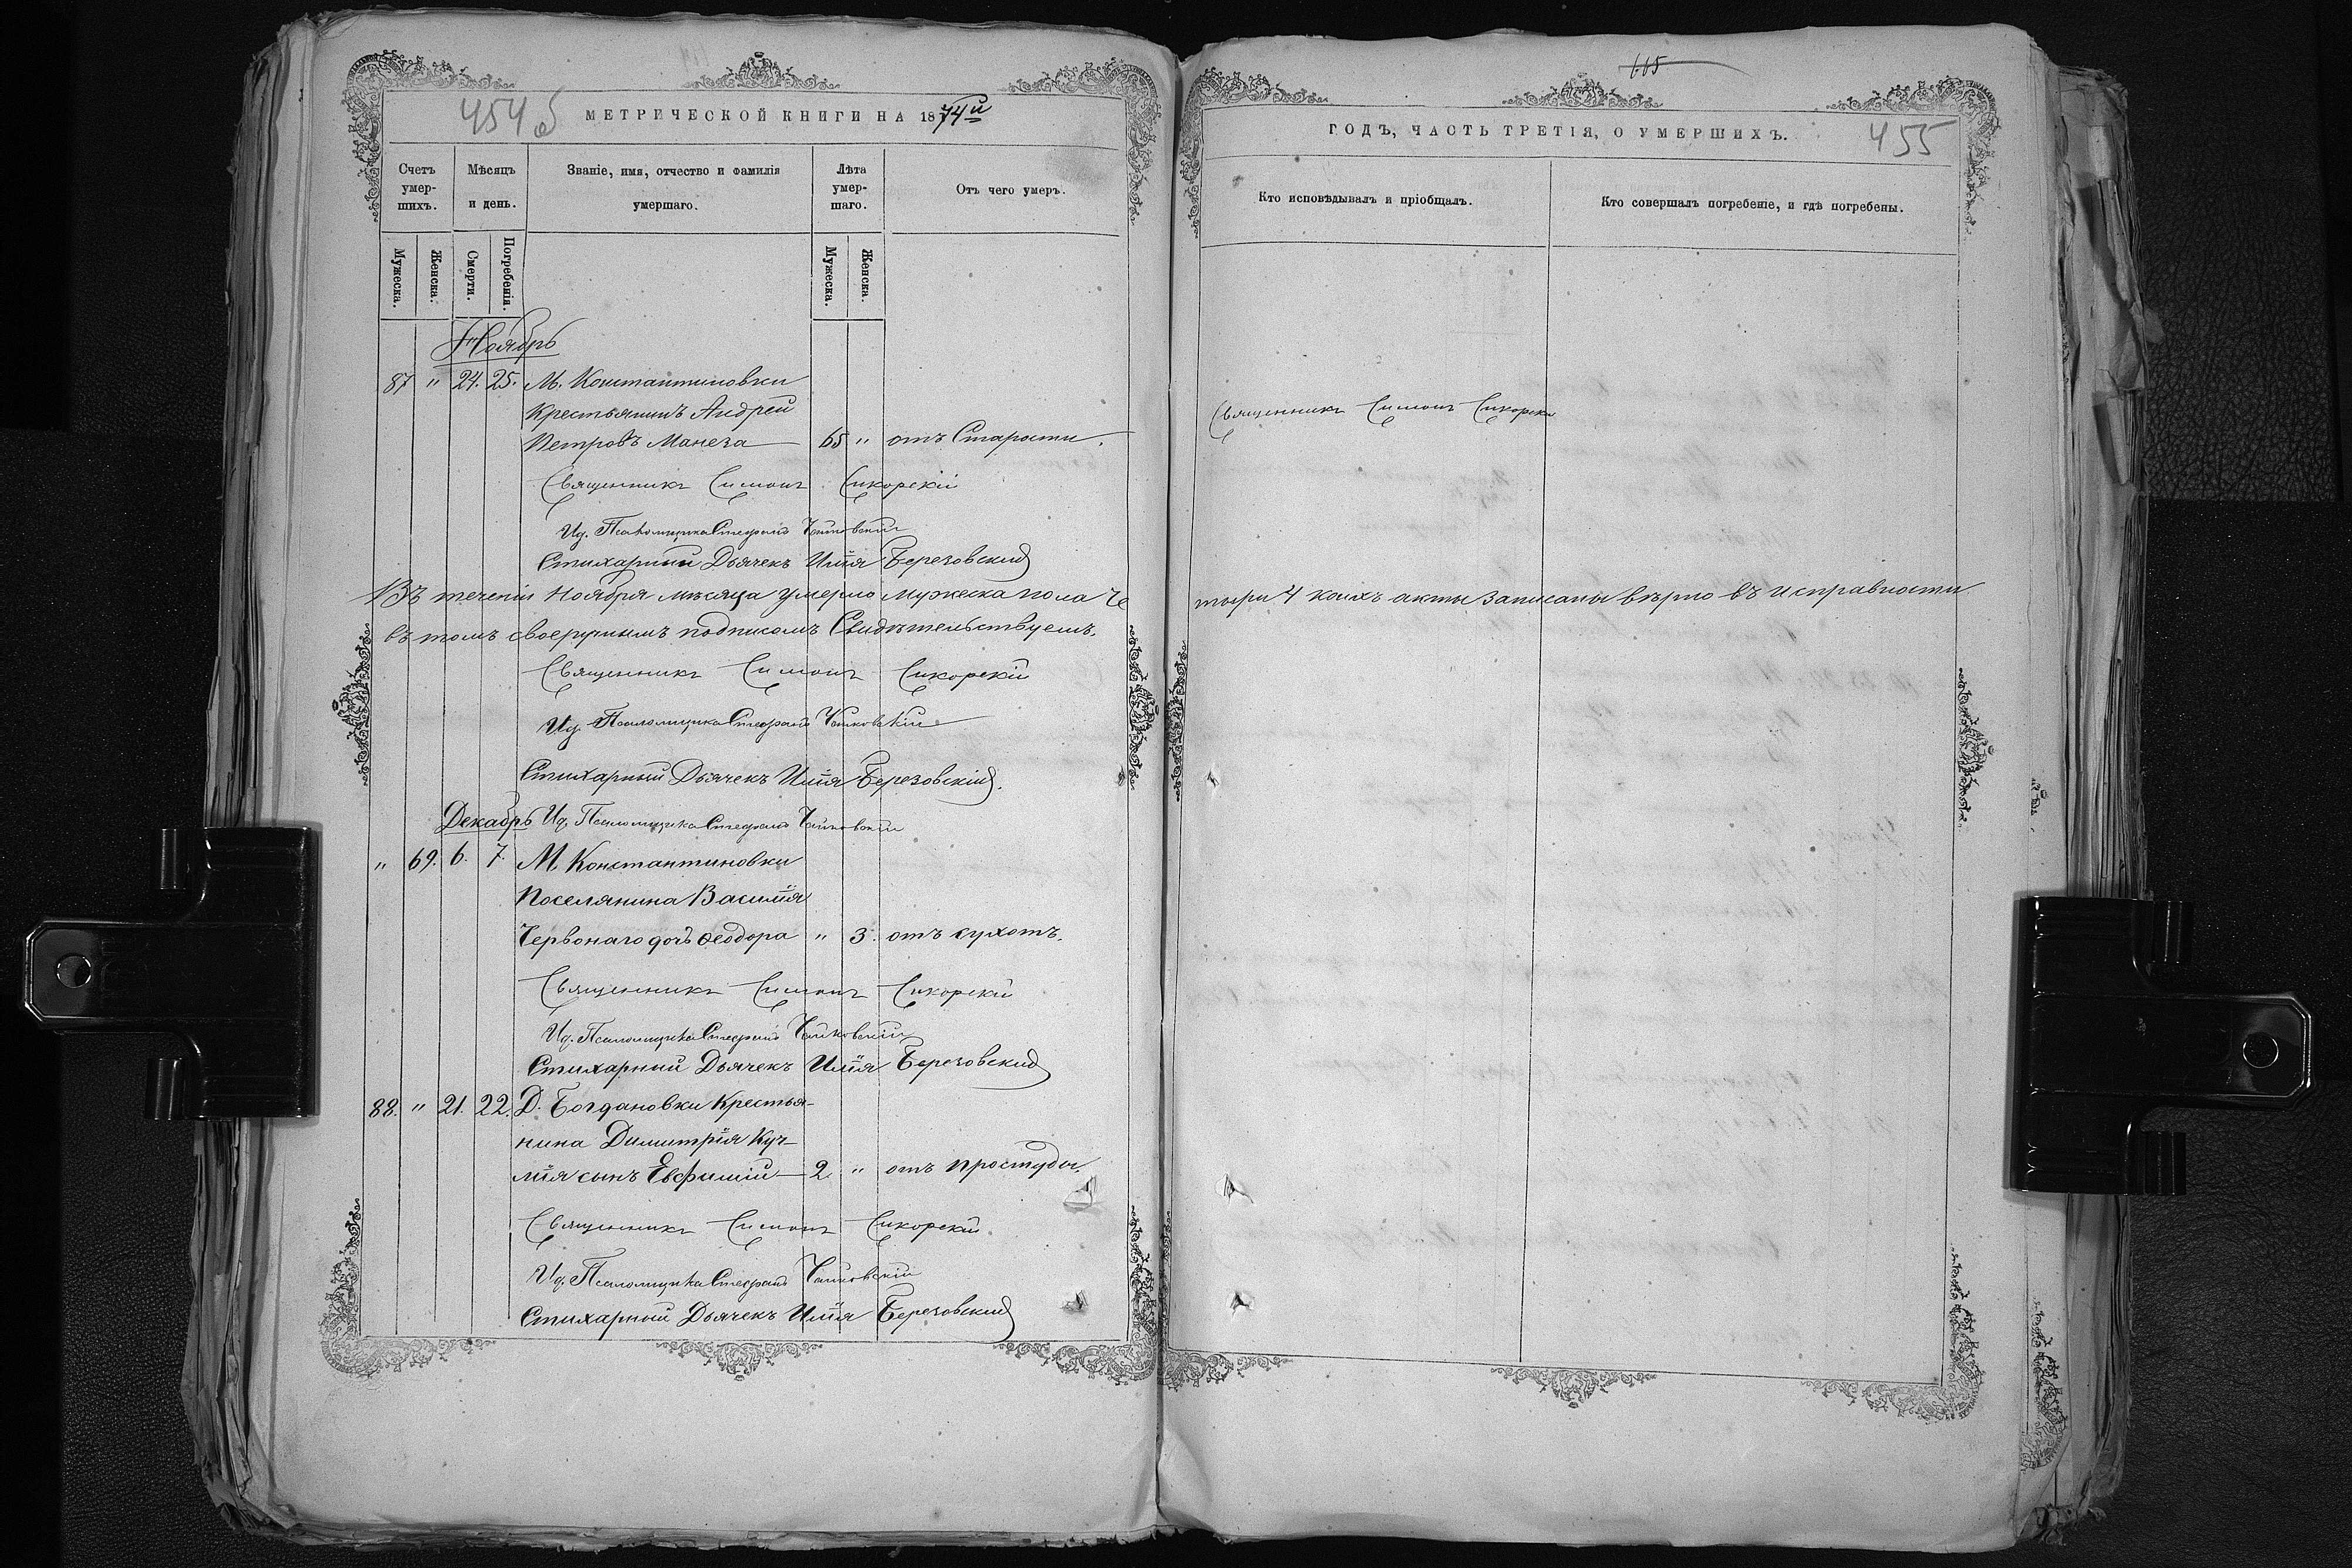 454 об
МЕТРИЧЕСКОЙ КНИГИ НА 1874й
Счетъ умер- шихъ.
Мѣсяцъ и день.
Званіе, имя, отчество и фамилія умершаго.
Лѣта умер- шаго.
Отъ чего умеръ.
Мужеска.
Женска.
Смерти.
Погребенія.
Мужеска.
Женска.
Ноябрь
87 " 24. 25. М. Константиновки
Крестьянинъ Андрей
Петровъ Манеза 65 " отъ Старости.
Священникъ Симонъ Сикорскій
Ид. Псаломщика Стефанъ Чайковскій
Стихарный Дьячекъ Илія Березовский
Въ теченіи Ноября мѣсяца умерло мужеска пола Че
въ томъ своеручнымъ подписомъ Свидѣтельствуемъ.
Священникъ Симонъ Сикорскій
Ид. Псаломщика Стефанъ Чайковскій
Стихарный Дьячекъ Илія Березовскій.
Декабрь Ид. Псаломщика Стефанъ Чайковскій
" 69. 6. 7. М. Константиновки
Поселянина Василія
Червонаго дочь Феодора " 3. отъ сухотъ.
Священникъ Симонъ Сикорскій
Ид. Псаломщика Стефанъ Чайковскій
Стихарный Дьячекъ Илія Березовский
88. " 21. 22. Д. Богдановки Крестья-
нина Димитрія Куч-
мія сынъ Евфимій 2 " отъ простуды.
Священникъ Симонъ Сикорскій
Ид. Псаломщика Стефанъ Чайковскій
Стихарный Дьячекъ Илія Березовский
ГОДЪ, ЧАСТЬ ТРЕТІЯ, О УМЕРШИХЪ.
455
Кто исповѣдывалъ и пріобщалъ.
Кто совершалъ погребеніе, и гдѣ погребены.
Священникъ Симонъ Сикорски
тыри 4 коихъ акты записаны вѣрно въ исправности